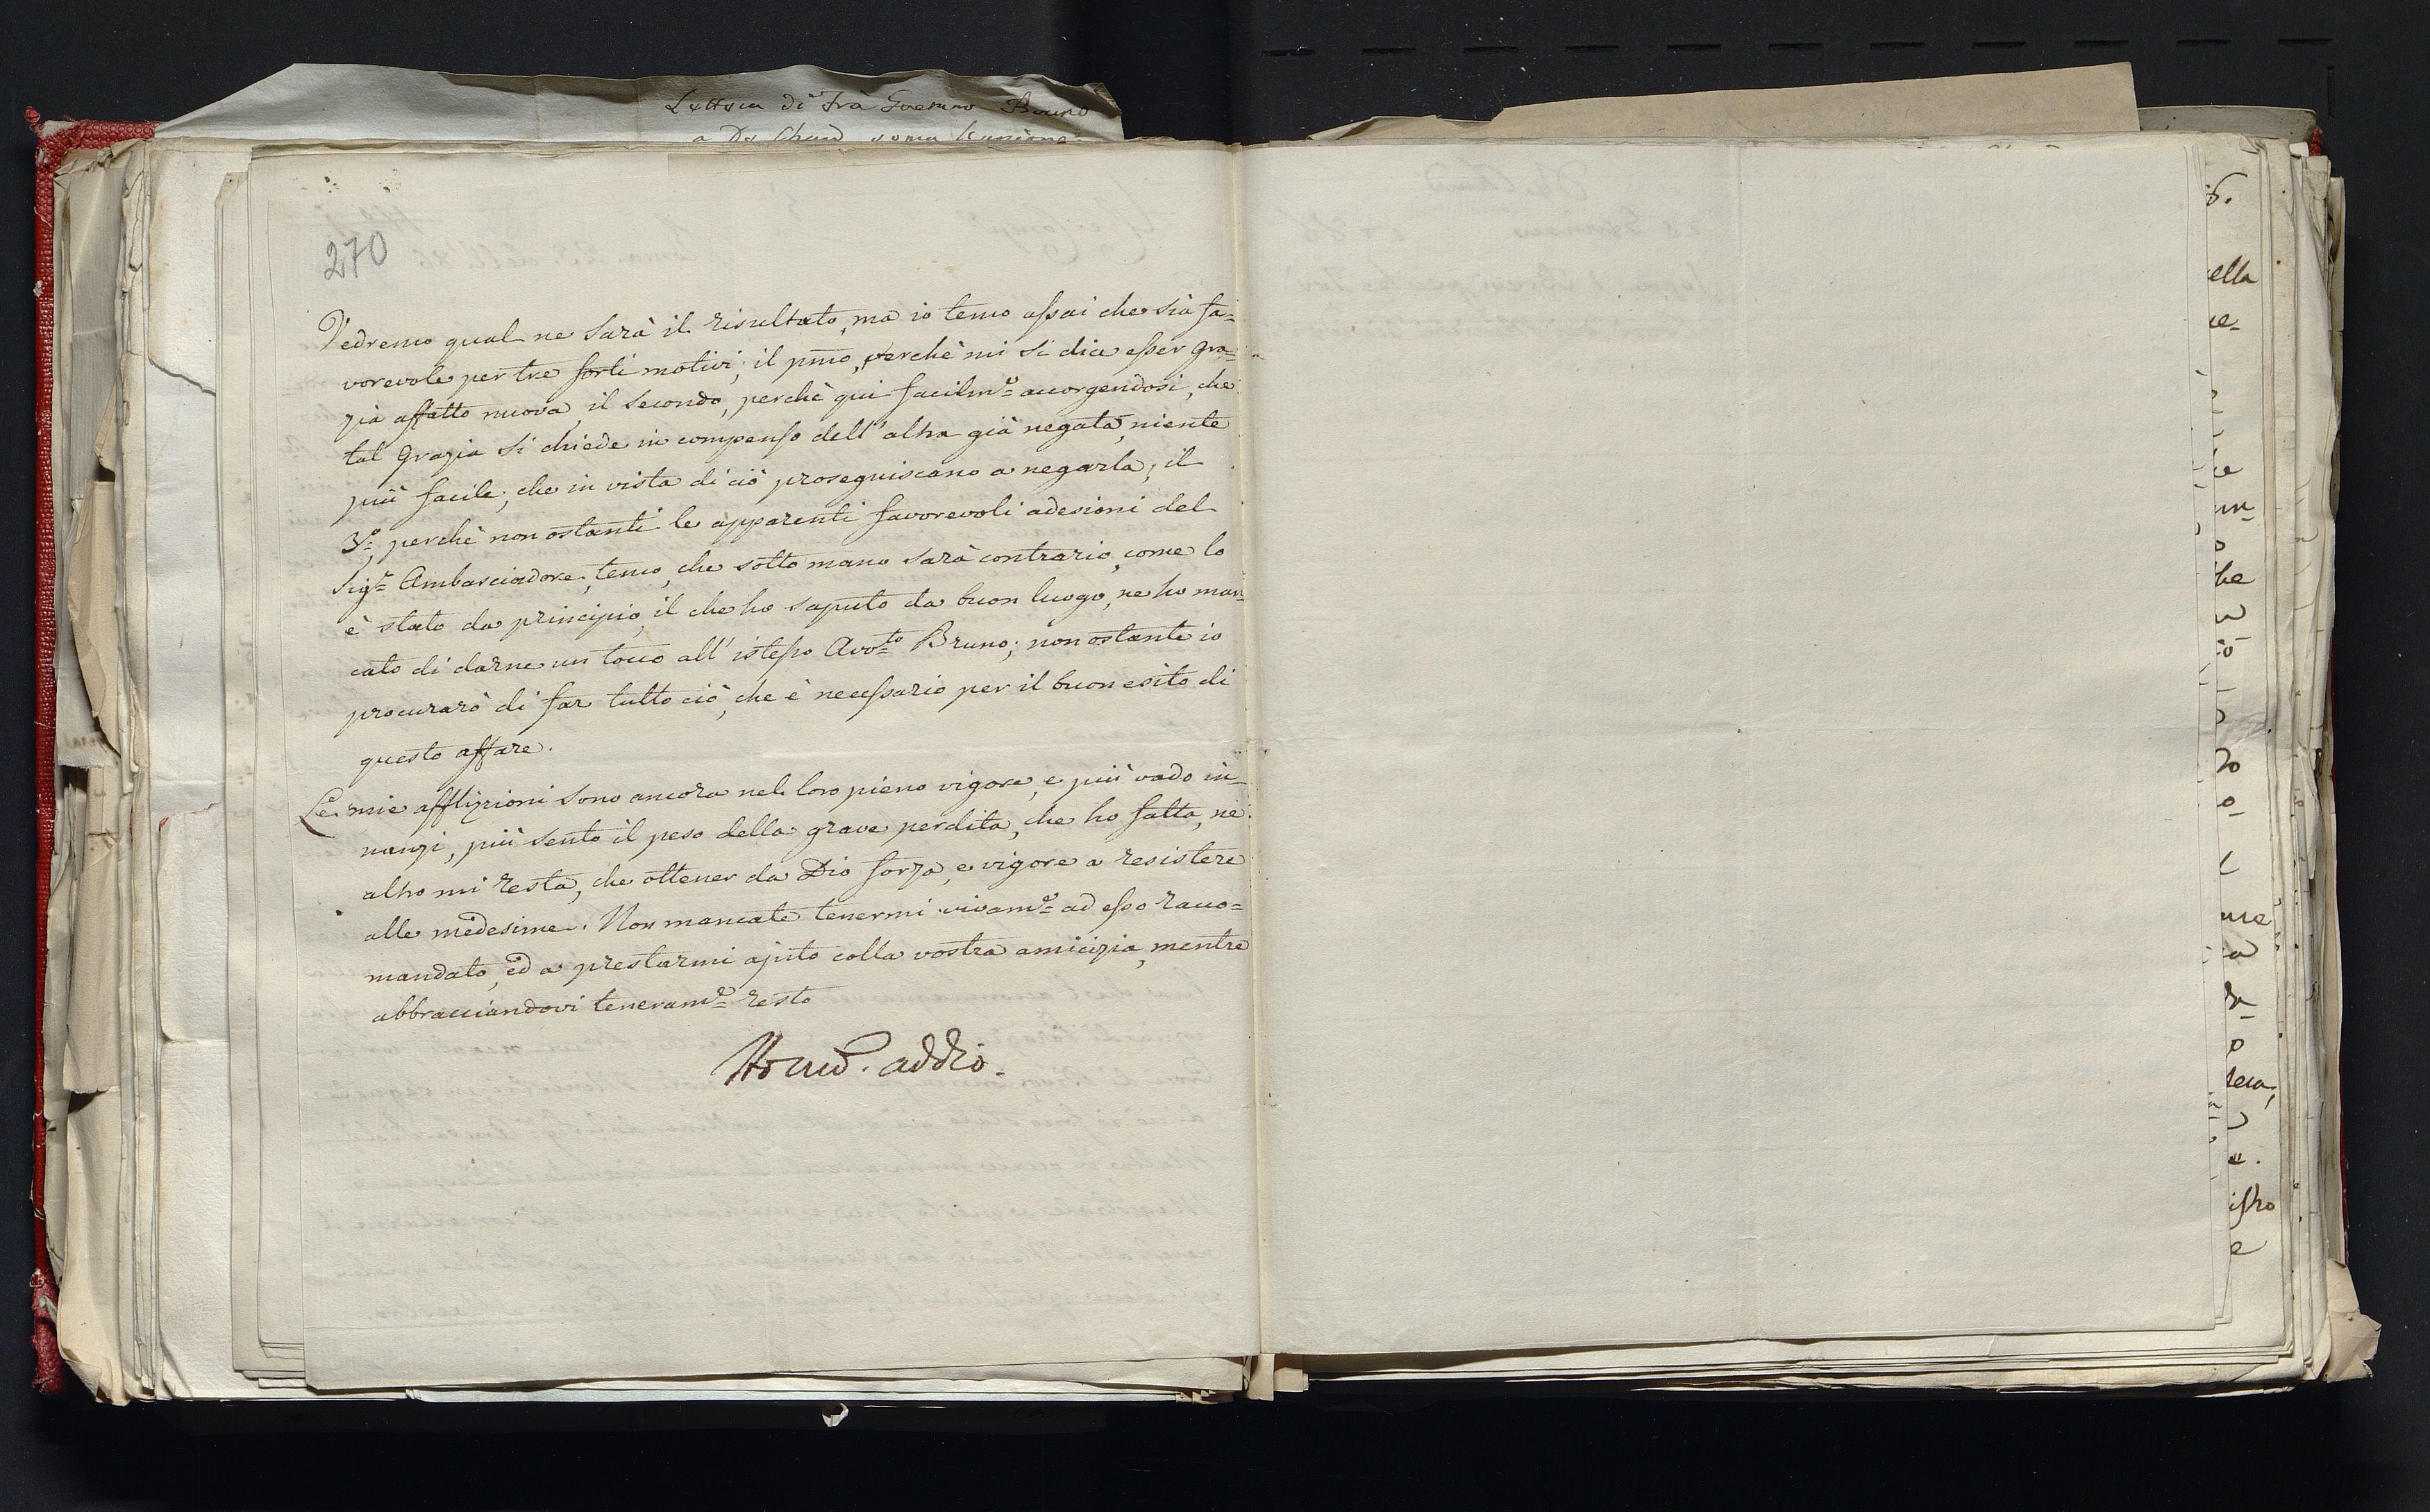 Lettera di frà Bruno
270
Vedremo qual ne sarà il risultato, ma io temo assai che sia fa=
vorevole per tre forti motivi; il pmo, perchè mi si dice esser gra=
zia affatto nuova, il secondo, perchè qui facilmᵉ accorgendosi, che
tal Grazia si chiede in compenso dell'altra già negata, niente
più facile, che in vista di ciò proseguiscano a negarla; il
3º, perchè non ostanti le apparenti favorevoli adesioni del
Sigʳ Ambasciadore, temo, che sotto mano sarà contrario, come lo
è stato da principio, il che ho saputo da buon luogo, ne ho man
cato di darne un tocco all'istesso Avoᵗᵒ Bruno; non ostante io
procurarò di far tutto ciò, che è necessario per il buon esito di
questo affare.
Le mie afflizioni sono ancora nel loro pieno vigore, e più vado in=
nanzi, più sento il peso della grave perdita, che ho fatta, nè
altro mi resta, che ottener da Dio forza, e vigore a resistere
alle medesime. Non mancate tenermi vivamᵉ ad esso racco=
mandato, ed a prestarmi ajuto colla vostra amicizia, mentre
abbracciandovi teneramᵉ resto
addio.